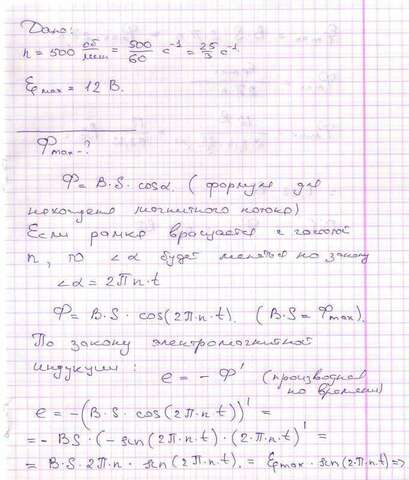 Дано:
n = 500 об/мин = 500/60 с⁻¹ = 25/3 с⁻¹.
ξmax = 12 В.
Фmax - ?
Ф = B·S·cosα. (формула для
нахождения магнитного потока)
Если рамка вращается с частотой
n, то <α будет меняться по закону
<α = 2π n·t
Ф = B·S· cos(2π·n·t). (B·S = Фmax).
По закону электромагнитной
индукции: e = - Ф' (производная
по времени)
e = -(B·S· cos(2π·n·t))' =
= - BS·(- sin(2π·n·t)·(2·π·n·t)' =
= B·S·2π·n· sin(2π·n·t). = ξmax· sin(2·π·n·t) =>